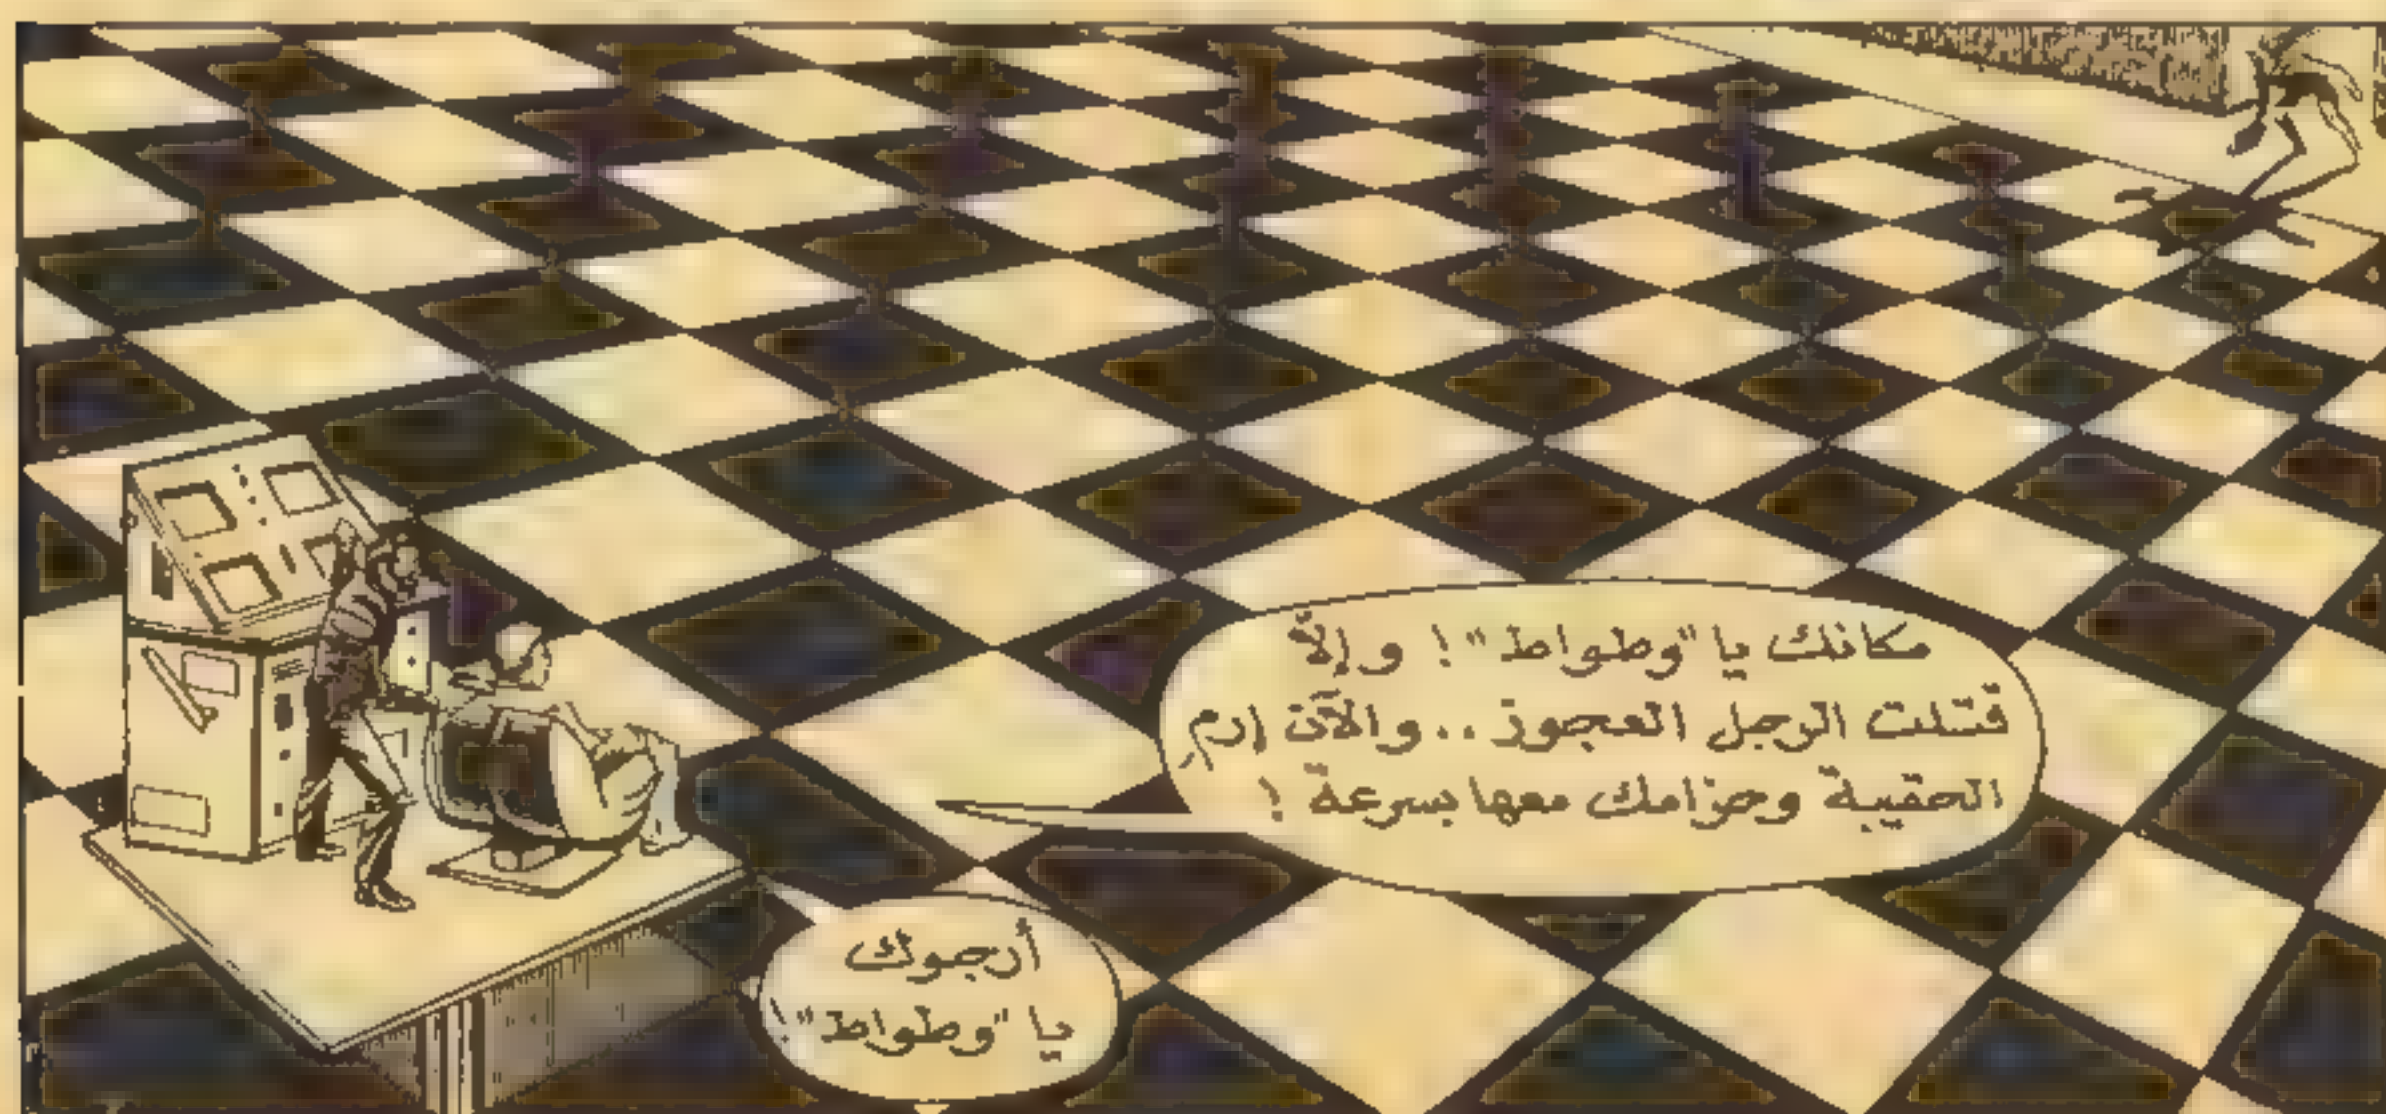 مكانك يا "وطواط" ! و إلاّ
قتلت الرجل العجوز .. والآن إرمِ
الحقيبة وحزامك معها بسرعة !
أرجوك
يا "وطواط" !